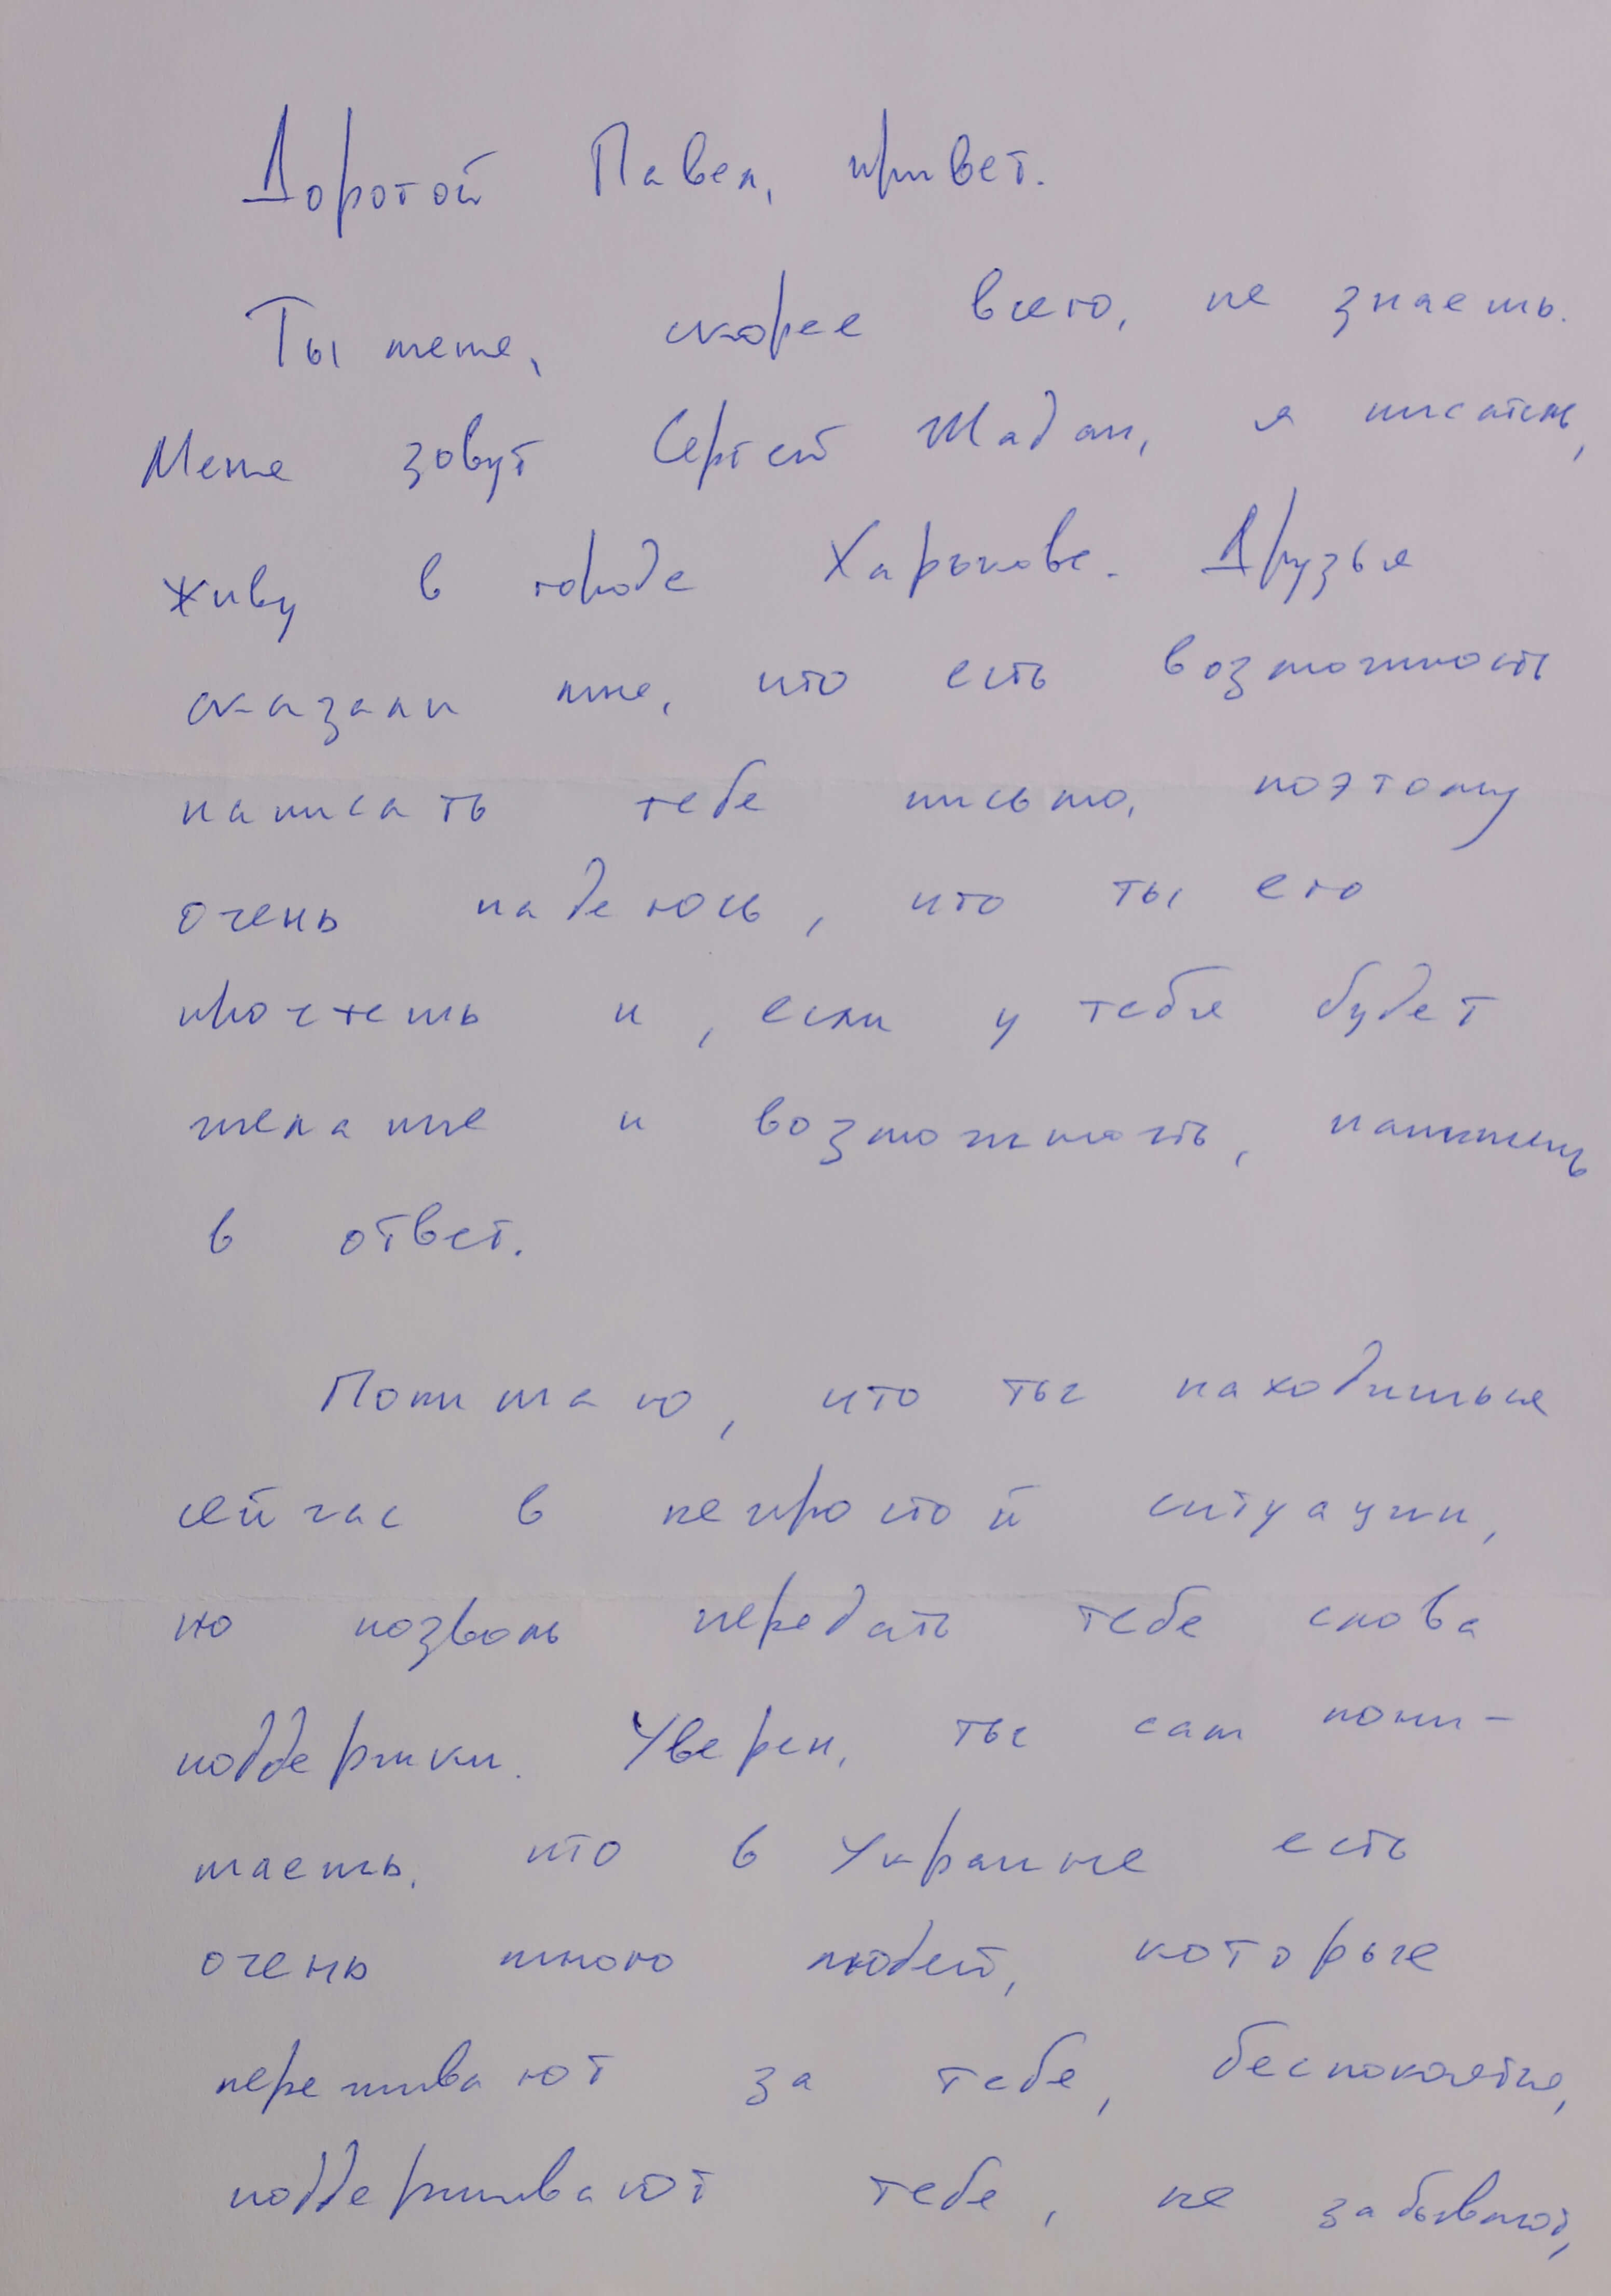 Дорогой Павел, привет.
Ты меня, скорее всего, не знаешь.
Меня зовут Сергей Жадан, я писатель,
живу в городе Харькове. Друзья
сказали мне, что есть возможность
написать тебе письмо, поэтому
очень надеюсь, что ты его
прочтешь и, если у тебя будет
желание и возможность, напишешь
в ответ.
Понимаю, что ты находишься
сейчас в непростой ситуации,
но позволь передать тебе слова
поддержки. Уверен, ты сам пони-
маешь, что в Украине есть
очень много людей, которые
переживают за тебя, беспокоятся,
поддерживают тебя, не забывают,